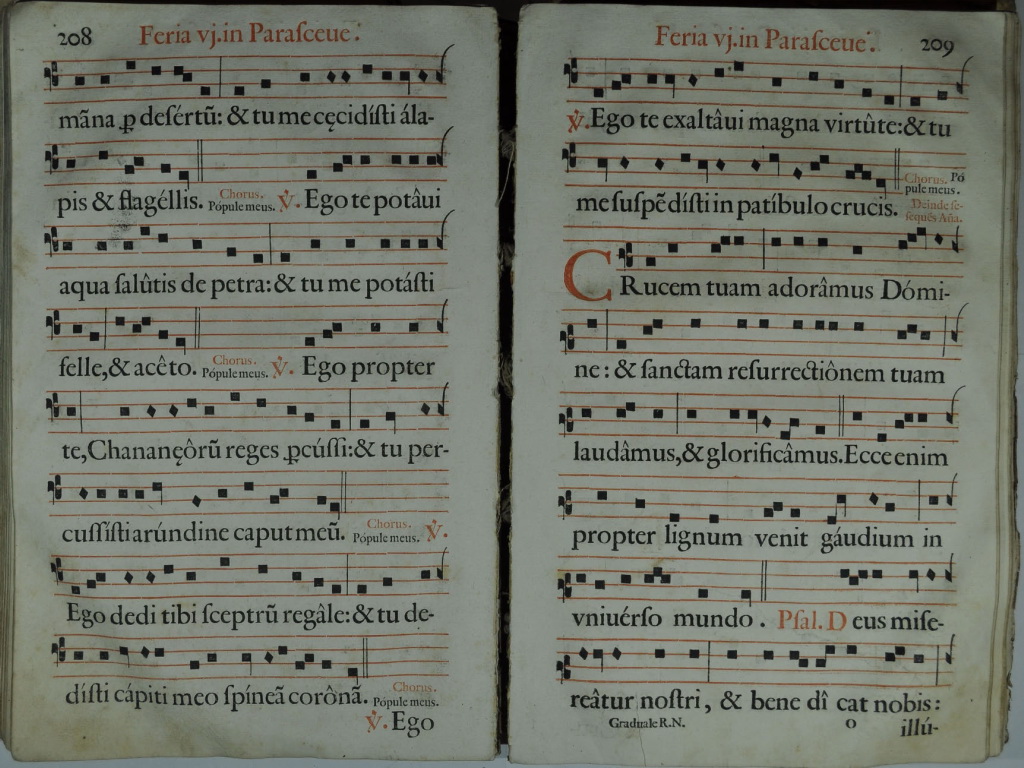 208 Feria vj.in Paraſceue.
mãna ꝑ deſértũ: & tu me cęcidíſti ála-
pis & flagéllis. Chorus. Pópule meus. ℣. Ego te potâui
aqua ſalûtis de petra: & tu me potáſti
felle, & acêto. Chorus. Pópule meus. ℣. Ego propter
te, Chananęôrũ reges ꝑcúſſi: & tu per-
cuſſíſti arúndine caput meũ. Chorus. Pópule meus. ℣.
Ego dedi tibi ſceptrũ regâle: & tu de-
díſti cápiti meo ſpíneã corônã. Chorus. Pópule meus.
℣. Ego
Feria vj.in Paraſceue. 209
℣. Ego te exaltâui magna virtûte: & tu
me ſuſpẽdíſti in patíbulo crucis. Chorus. Pópule meus. Deinde ſe-ſequẽs Aña.
CRucem tuam adorâmus Dómi-
ne: & ſanctam reſurrectiônem tuam
laudâmus, & glorificâmus. Ecce enim
propter lignum venit gáudium in
vniuérſo mundo. Pſal. Deus miſe-
reâtur noſtri, & bene dî cat nobis:
Graduale R.N. O illú-